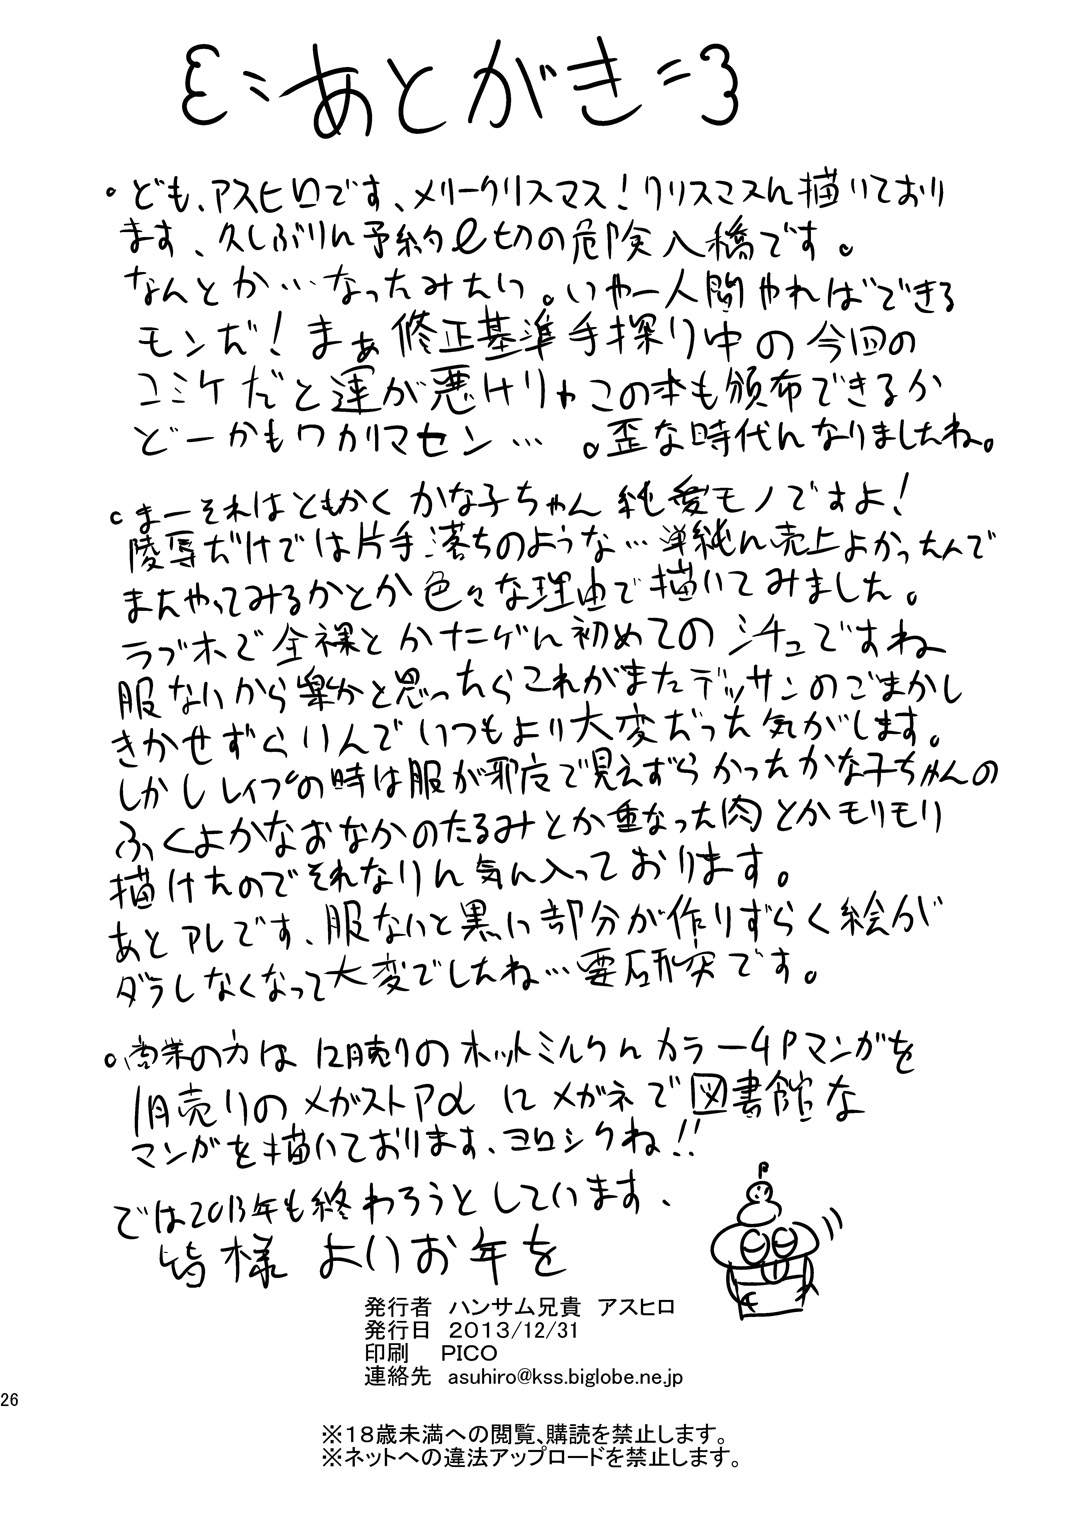 あとがき
。ども、アスヒロです、メリークリスマス！クリスマスに描いており
ます、久しぶりに予約〆切の危険入稿です。
なんとか…なったみたい。いやー人間やればできる
モンだ！まぁ修正基準手探り中の今回の
コミケだと運が悪けりゃこの本も頒布できるか
どーかもワカリマセン…。歪な時代になりましたね。
。まーそれはともかくかな子ちゃん純愛モノですよ！
陵辱だけでは片手落ちのような…単純に売上よかったんで
またやってみるかとか色々な理由で描いてみました。
ラブホで全裸とかナニゲに初めてのシチュですね
服ないから楽かと思ったらこれがまたデッサンのごまかし
きかせずらいんでいつもより大変だった気がします。
しかしレイプの時は服が邪魔で見えずらかったかな子ちゃんの
ふくよかなおなかのたるみとか重なった肉とかモリモリ
描けたのでそれなりに気に入っております。
あとアレです、服ないと黒い部分が作りずらく絵が
ダラしなくなって大変でしたね…要研究です。
。商業の方は12月売りのホットミルクにカラー4Pマンガを
1月売りのメガストアαにメガネで図書館な
マンガを描いております、ヨロシクね！！
では2013年も終わろうとしています、
皆様よいお年を
発行者 ハンサム兄貴 アスヒロ
発行日 2013/12/31
印刷 PICO
連絡先 asuhiro@kss.biglobe.ne.jp
26
※18歳未満への閲覧、購読を禁止します。
※ネットへの違法アップロードを禁止します。